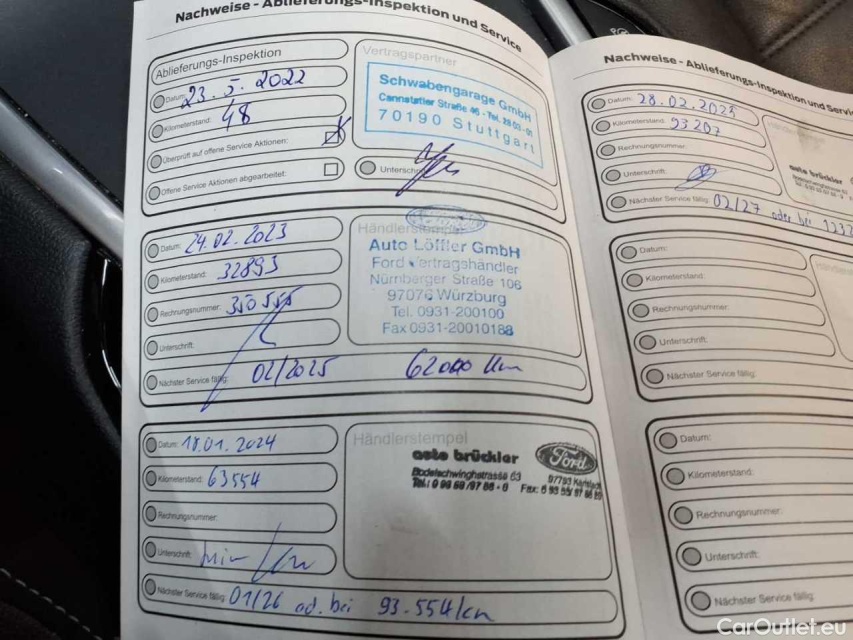 Nachweise - Ablieferungs-Inspektion und Service
Ablieferungs-Inspektion
Datum: 23.5.2022
Kilometerstand: 48
Überprüft auf offene Service Aktionen:
Offene Service Aktionen abgearbeitet:
Vertragspartner
Schwabengarage GmbH
Cannstatter Straße 46 - Tel. 28 03 - 01
70190 Stuttgart
Unterschrift
Datum: 24.02.2023
Kilometerstand: 32893
Rechnungsnummer: 350555
Unterschrift:
Nächster Service fällig: 02/2025 62000 km
Händlerstempel
Auto Löffler GmbH
Ford Vertragshändler
Nürnberger Straße 106
97076 Würzburg
Tel. 0931-200100
Fax 0931-20010188
Datum: 18.01.2024
Kilometerstand: 63554
Rechnungsnummer:
Unterschrift:
Nächster Service fällig: 01/26 od. bei 93.554km
Händlerstempel
auto brückler
Ford
Bodelschwinghstrasse 63
Nachweise - Ablieferungs-Inspektion und Servi
Datum: 28.02.2025
Kilometerstand: 93207
Rechnungsnummer:
Unterschrift:
Nächster Service fällig: 02/27 oder bei
auto brückler
Datum:
Kilometerstand:
Rechnungsnummer:
Unterschrift:
Nächster Service fällig:
Datum:
Kilometerstand:
Rechnungsnummer:
Unterschrift:
Nächster Service fällig:
CarOutlet.eu